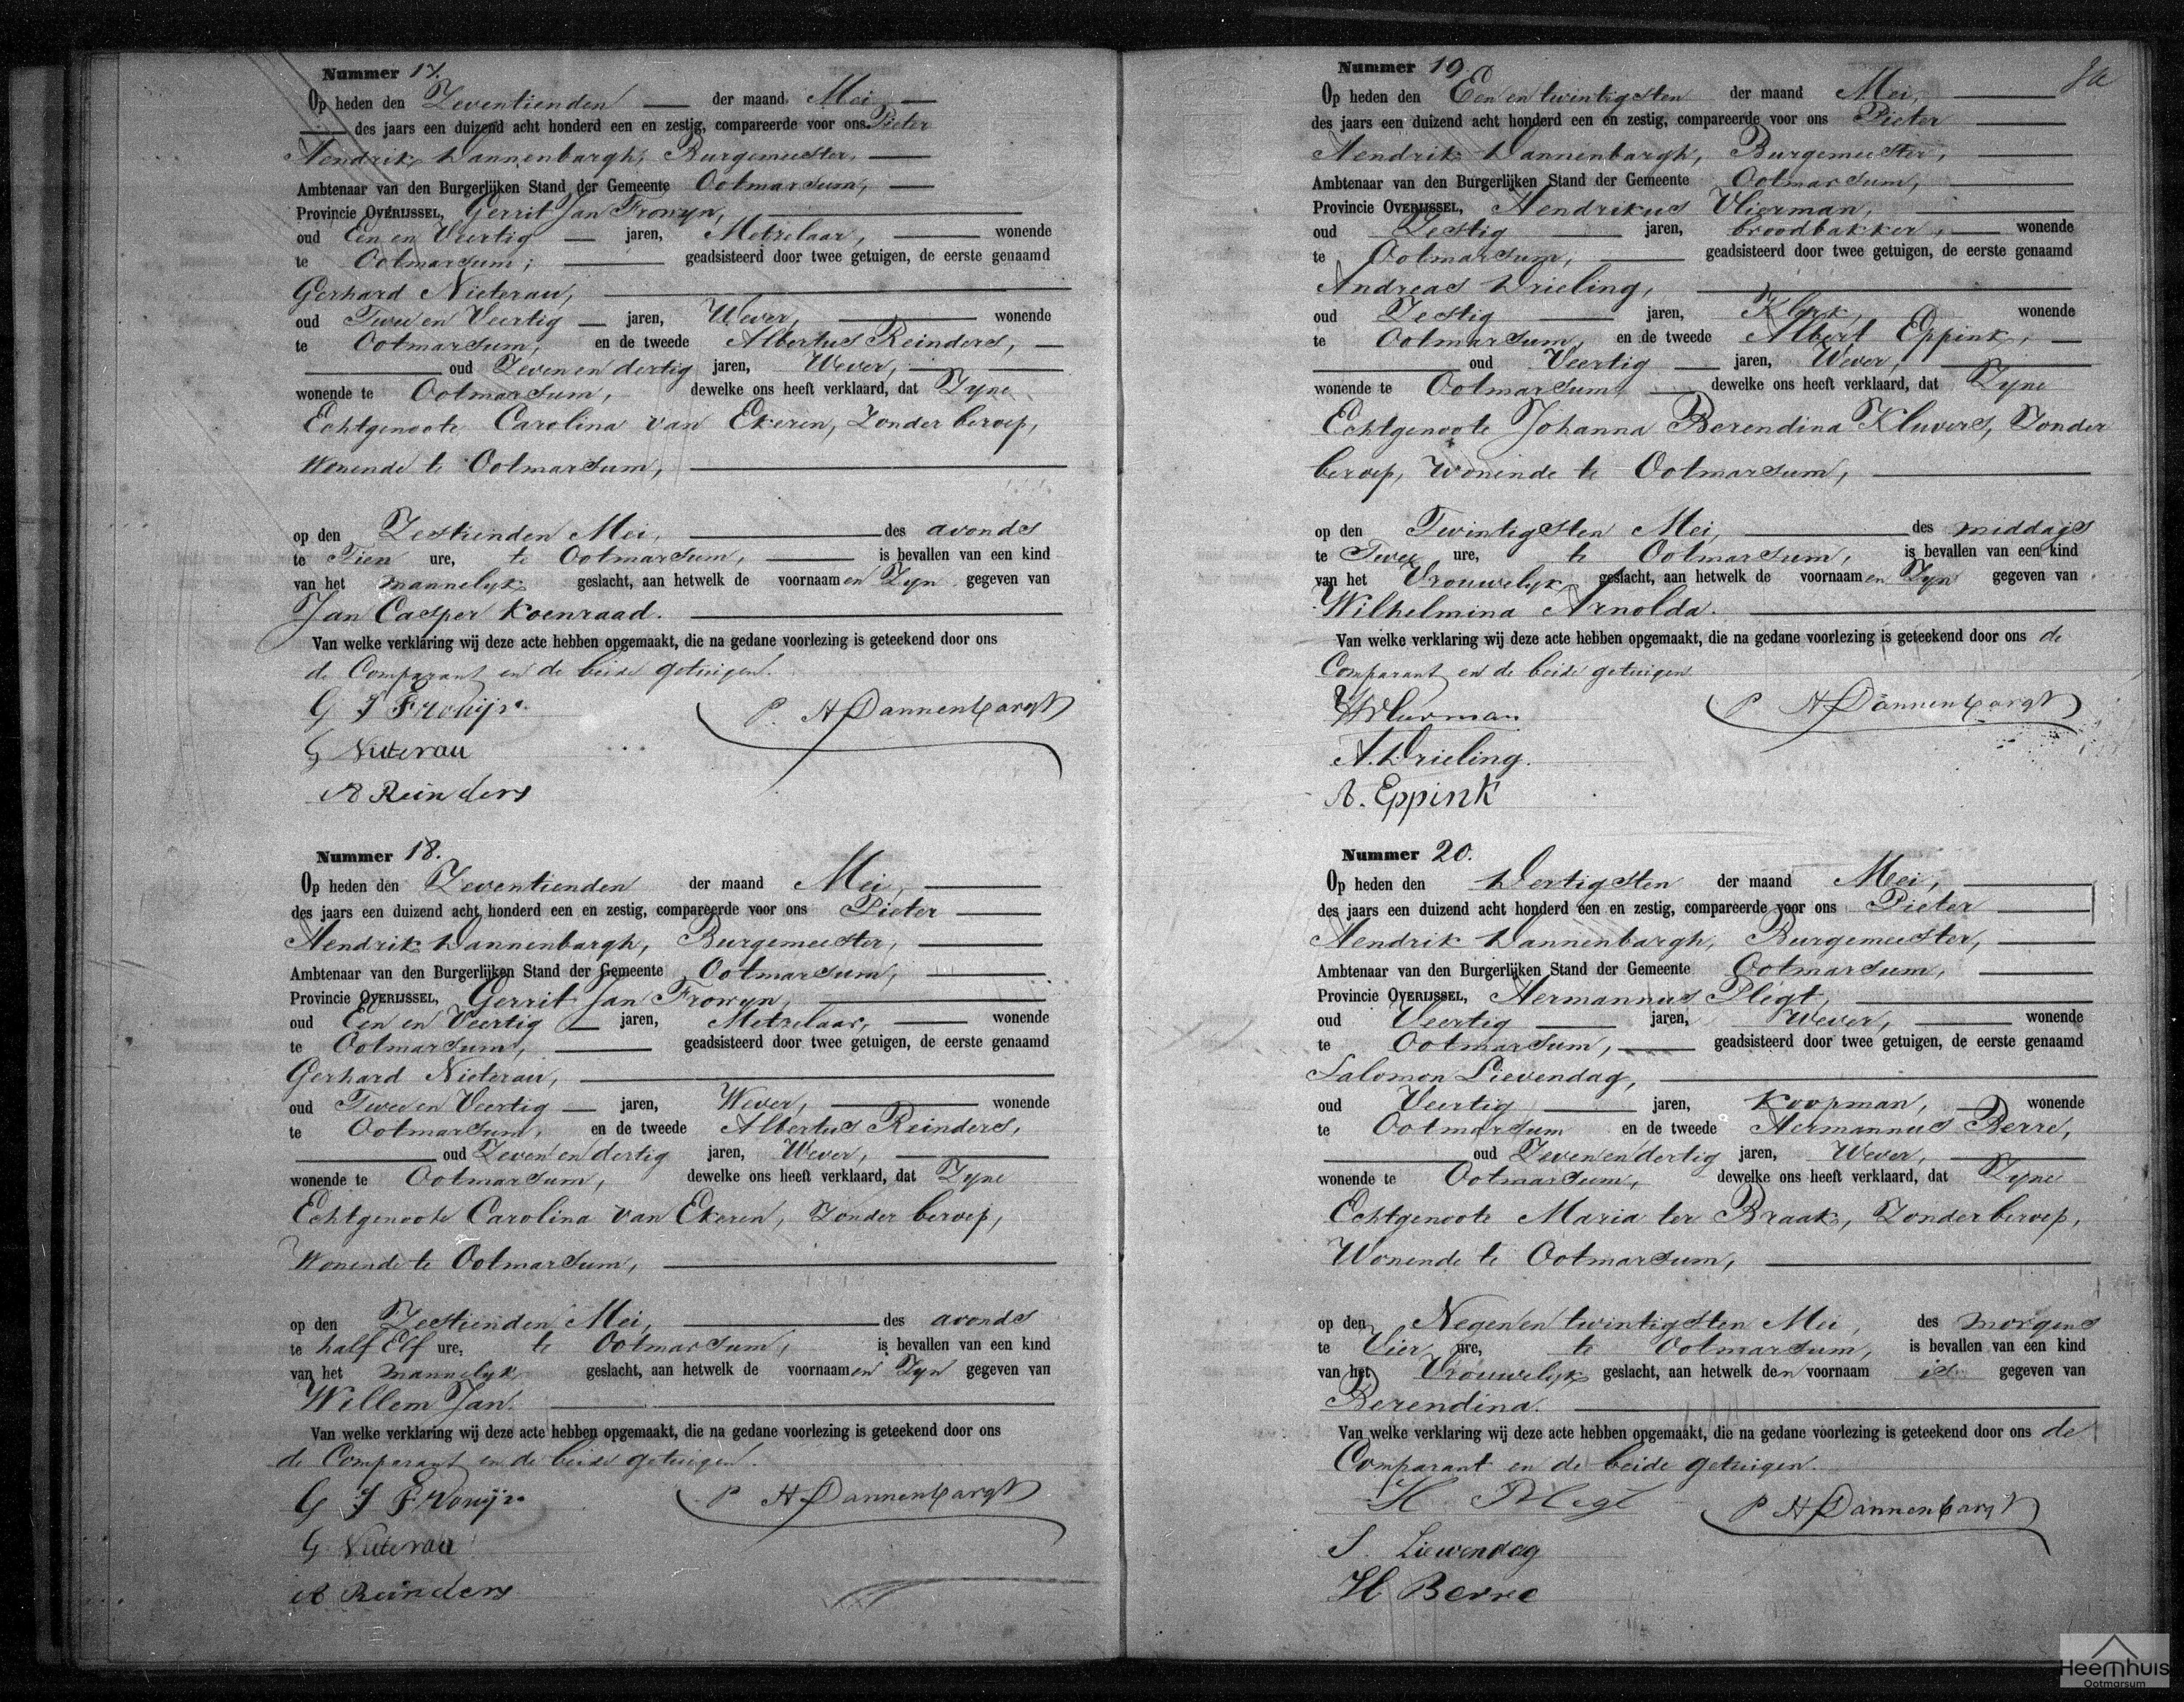 Nummer 17.
Op heden den Zeventienden der maand Mei
des jaars een duizend acht honderd een en zestig, compareerde voor ons Pieter
Hendrik Dannenbargh, Burgemeester,
Ambtenaar van den Burgerlijken Stand der Gemeente Ootmarsum,
Provincie OVERIJSSEL, Gerrit Jan Frowyn,
oud Een en Veertig jaren, Metzelaar, wonende
te Ootmarsum; geadsisteerd door twee getuigen, de eerste genaamd
Gerhard Nieterau,
oud Twee en Veertig jaren, Wever, wonende
te Ootmarsum, en de tweede Albertus Reinders,
oud Zeven en dertig jaren, Wever,
wonende te Ootmarsum, dewelke ons heeft verklaard, dat Zyne
Echtgenoote Carolina van Ekeren, Zonder beroep,
Wonende te Ootmarsum,
op den Zestienden Mei, des avonds
te Tien ure, te Ootmarsum, is bevallen van een kind
van het mannelyk geslacht, aan hetwelk de voornaamen Zyn gegeven van
Jan Casper Koenraad.
Van welke verklaring wij deze acte hebben opgemaakt, die na gedane voorlezing is geteekend door ons
de Comparant en de beide getuigen.
G J Frowijn
P. H Dannenbargh
G Nieterau
A Reinders
Nummer 18.
Op heden den Zeventienden der maand Mei,
des jaars een duizend acht honderd een en zestig, compareerde voor ons Pieter
Hendrik Dannenbargh, Burgemeester,
Ambtenaar van den Burgerlijken Stand der Gemeente Ootmarsum,
Provincie OVERIJSSEL, Gerrit Jan Frowyn,
oud Een en Veertig jaren, Metzelaar, wonende
te Ootmarsum, geadsisteerd door twee getuigen, de eerste genaamd
Gerhard Nieterau,
oud Twee en Veertig jaren, Wever, wonende
te Ootmarsum, en de tweede Albertus Reinders,
oud Zeven en dertig jaren, Wever,
wonende te Ootmarsum, dewelke ons heeft verklaard, dat Zyne
Echtgenoote Carolina van Ekeren, Zonder beroep,
Wonende te Ootmarsum,
op den Zestienden Mei, des avonds
te half Elf ure, te Ootmarsum, is bevallen van een kind
van het mannelyk geslacht, aan hetwelk de voornaamen Zyn gegeven van
Willem Jan.
Van welke verklaring wij deze acte hebben opgemaakt, die na gedane voorlezing is geteekend door ons
de Comparant en de beide getuigen.
G J Frowijn
P H Dannenbargh
G. Nieterau
A Reinders
Nummer 19.
Op heden den Een en twintigsten der maand Mei,
des jaars een duizend acht honderd een en zestig, compareerde voor ons Pieter
Hendrik Dannenbargh, Burgemeester,
Ambtenaar van den Burgerlijken Stand der Gemeente Ootmarsum,
Provincie OVERIJSSEL, Hendrikus Vlierman,
oud Zestig jaren, broodbakker, wonende
te Ootmarsum, geadsisteerd door twee getuigen, de eerste genaamd
Andreas Drieling,
oud Zestig jaren, Klerk, wonende
te Ootmarsum, en de tweede Albert Eppink,
oud Veertig jaren, Wever,
wonende te Ootmarsum, dewelke ons heeft verklaard, dat Zyne
Echtgenoote Johanna Berendina Kluvers, Zonder
beroep, Wonende te Ootmarsum,
op den Twintigsten Mei, des middags
te Twee ure, te Ootmarsum, is bevallen van een kind
van het Vrouwelyk geslacht, aan hetwelk de voornaamen Zyn gegeven van
Wilhelmina Arnolda.
Van welke verklaring wij deze acte hebben opgemaakt, die na gedane voorlezing is geteekend door ons de
Comparant en de beide getuigen
H Vlierman
P H Dannenbargh
A. Drieling.
A. Eppink
Nummer 20.
Op heden den Dertigsten der maand Mei,
des jaars een duizend acht honderd een en zestig, compareerde voor ons Pieter
Hendrik Dannenbargh, Burgemeester,
Ambtenaar van den Burgerlijken Stand der Gemeente Ootmarsum,
Provincie OVERIJSSEL, Hermannus Plegt,
oud Veertig jaren, Wever, wonende
te Ootmarsum, geadsisteerd door twee getuigen, de eerste genaamd
Salomon Lievendag,
oud Veertig jaren, Koopman, wonende
te Ootmarsum en de tweede Hermannus Berre,
oud Zeven en dertig jaren, Wever,
wonende te Ootmarsum, dewelke ons heeft verklaard, dat Zyne
Echtgenoote Maria ter Braak, Zonder beroep,
Wonende te Ootmarsum,
op den Negen en twintigsten Mei, des morgens
te Vier ure, te Ootmarsum, is bevallen van een kind
van het Vrouwelyk geslacht, aan hetwelk den voornaam is gegeven van
Berendina.
Van welke verklaring wij deze acte hebben opgemaakt, die na gedane voorlezing is geteekend door ons de
Comparant en de beide getuigen.
H. Plegt
P H Dannenbargh
S. Liewendag
H Berre
Heemhuis
Ootmarsum